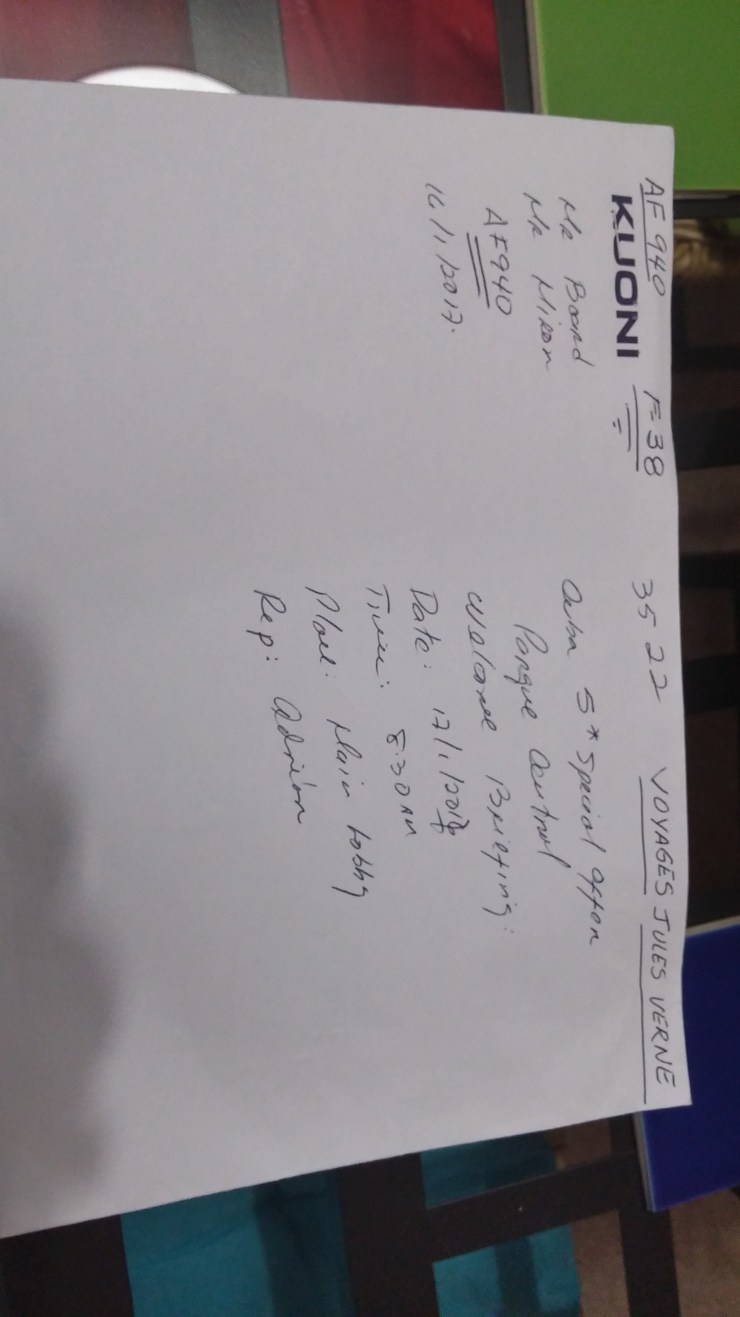 AF 940 F=38 3522 VOYAGES JULES VERNE
KUONI
Mr Board
Mr Mixon
AF940
16/1/2017.
Cuba 5* Special offer
Parque Central
Welcome Briefing:
Date: 17/1/2017
Time: 8:30 AM
Place: Main Lobby
Rep: Adrian